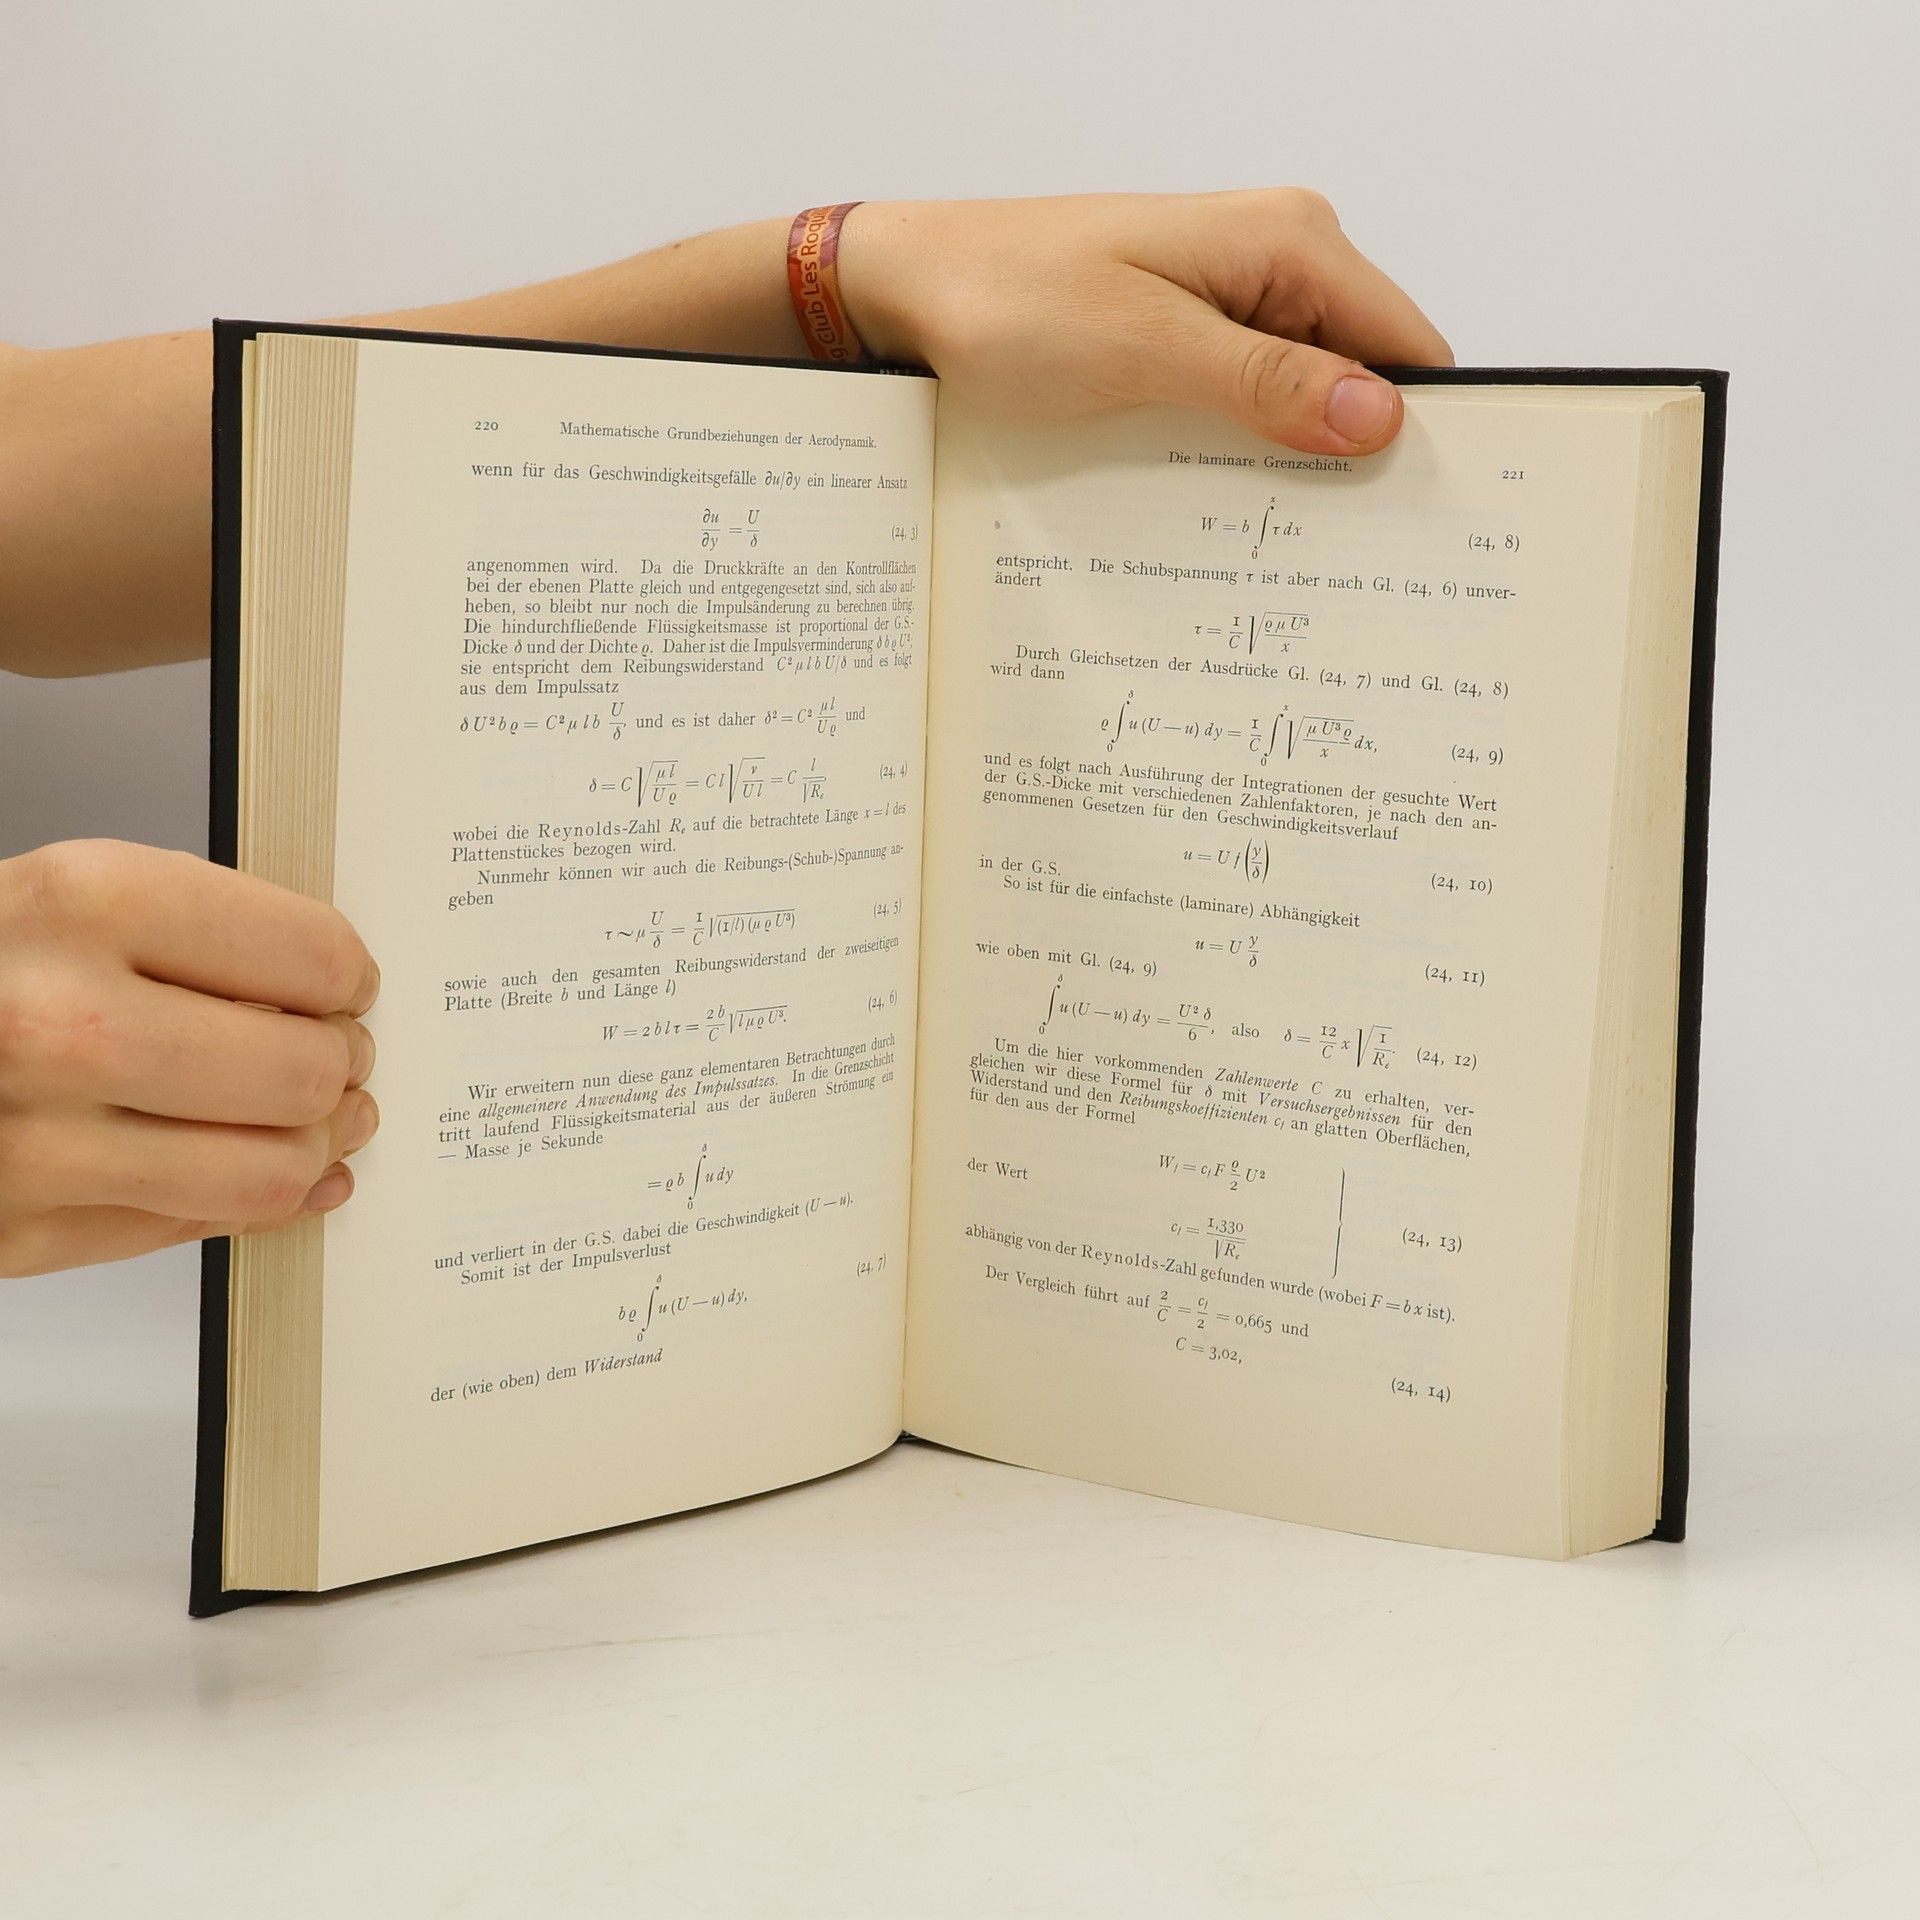 g Club Les Roqu
220 Mathematische Grundbeziehungen der Aerodynamik.
wenn für das Geschwindigkeitsgefälle ∂u/∂y ein linearer Ansatz
∂u/∂y = U/δ (24, 3)
angenommen wird. Da die Druckkräfte an den Kontrollflächen
bei der ebenen Platte gleich und entgegengesetzt sind, sich also auf-
heben, so bleibt nur noch die Impulsänderung zu berechnen übrig.
Die hindurchfließende Flüssigkeitsmasse ist proportional der G.S.-
Dicke δ und der Dichte ϱ. Daher ist die Impulsverminderung δ b ϱ U²;
sie entspricht dem Reibungswiderstand C² μ l b U/δ und es folgt
aus dem Impulssatz
δ U² b ϱ = C² μ l b U/δ, und es ist daher δ² = C² μ l/U ϱ und
δ = C √(μ l/U ϱ) = C l √(ν/U l) = C l/√Rₑ, (24, 4)
wobei die Reynolds-Zahl Rₑ auf die betrachtete Länge x = l des
Plattenstückes bezogen wird.
Nunmehr können wir auch die Reibungs-(Schub-)Spannung an-
geben
τ ∼ μ U/δ = 1/C √(1/l) (μ ϱ U³) (24, 5)
sowie auch den gesamten Reibungswiderstand der zweiseitigen
Platte (Breite b und Länge l)
W = 2 b l τ = 2 b/C √l μ ϱ U³. (24, 6)
Wir erweitern nun diese ganz elementaren Betrachtungen durch
eine allgemeinere Anwendung des Impulssatzes. In die Grenzschicht
tritt laufend Flüssigkeitsmaterial aus der äußeren Strömung ein
— Masse je Sekunde
= ϱ b ∫₀^δ u dy
und verliert in der G.S. dabei die Geschwindigkeit (U — u).
Somit ist der Impulsverlust
b ϱ ∫₀^δ u (U — u) dy, (24, 7)
der (wie oben) dem Widerstand
Die laminare Grenzschicht. 221
W = b ∫₀^x τ dx (24, 8)
entspricht. Die Schubspannung τ ist aber nach Gl. (24, 6) unver-
ändert
τ = 1/C √(ϱ μ U³/x)
Durch Gleichsetzen der Ausdrücke Gl. (24, 7) und Gl. (24, 8)
wird dann
ϱ ∫₀^δ u (U — u) dy = 1/C ∫₀^x √(μ U³ ϱ/x) dx, (24, 9)
und es folgt nach Ausführung der Integrationen der gesuchte Wert
der G.S.-Dicke mit verschiedenen Zahlenfaktoren, je nach den an-
genommenen Gesetzen für den Geschwindigkeitsverlauf
u = U f (y/δ) (24, 10)
in der G.S.
So ist für die einfachste (laminare) Abhängigkeit
u = U y/δ (24, 11)
wie oben mit Gl. (24, 9)
∫₀^δ u (U — u) dy = U² δ/6, also δ = 12/C x √(1/Rₑ). (24, 12)
Um die hier vorkommenden Zahlenwerte C zu erhalten, ver-
gleichen wir diese Formel für δ mit Versuchsergebnissen für den
Widerstand und den Reibungskoeffizienten c_f an glatten Oberflächen,
für den aus der Formel
W_f = c_f F ϱ/2 U²
der Wert
c_f = 1,330/√Rₑ (24, 13)
abhängig von der Reynolds-Zahl gefunden wurde (wobei F = b x ist).
Der Vergleich führt auf 2/C = c_f/2 = 0,665 und
C = 3,02, (24, 14)